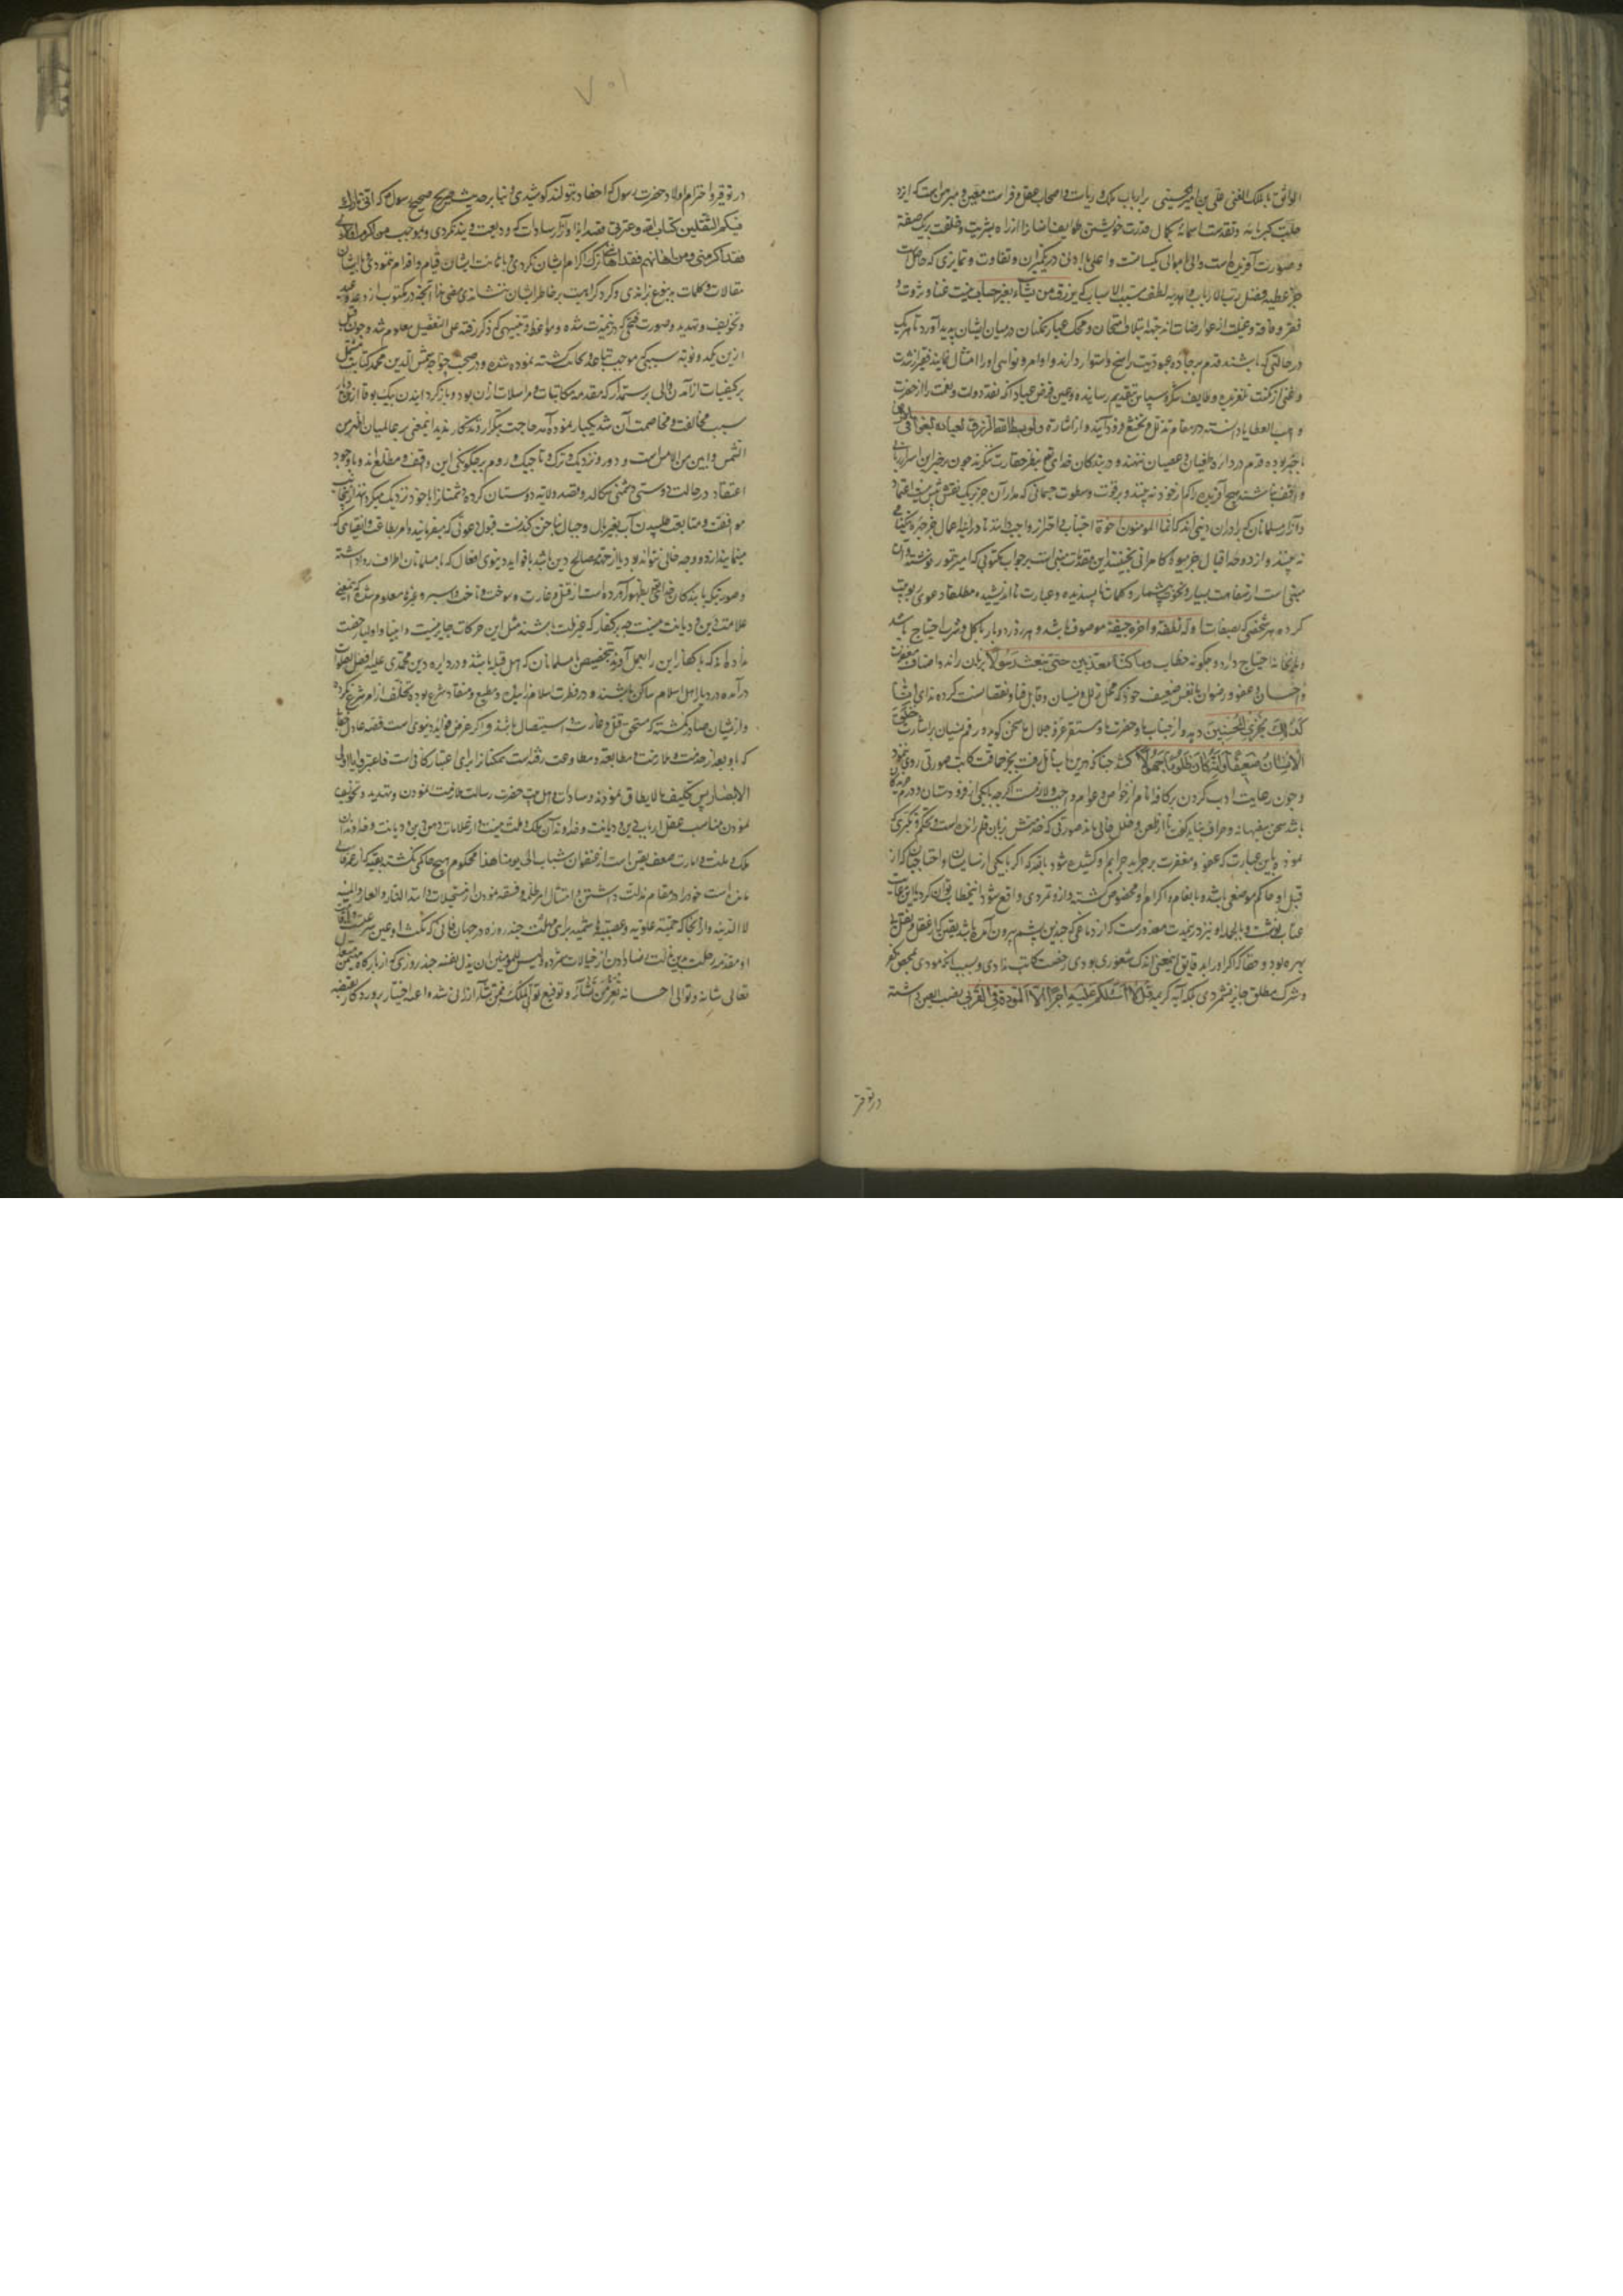 الواثق بالملك الغنی علی بن امیر الحسینی بر ارباب ملک و ریاست و اصحاب عقل و فراست معین و مبرهن است که ایزد
جلت کبریاءه و تقدست اسماءه بکمال قدرت خویشتن طوایف انسانرا از راه بشریت و خلقت بر یک صفة
و صورت آفریده است والی و موالی یکسانست و اعلی با ادنی در یک میزان و تفاوت و تمایزی که حاصل است
جز عطیه و فضل رب الارباب و هدیه لطف مسبب الاسباب که یرزق من یشاء بغیر حساب نیست غنا و ثروت و
فقر و فاقه و علت از عوارضات از جهة ابتلا و امتحان و محک عیار ممکنان در میان ایشان پدید آورد تا هر یک
در حالتی که باشند قدم بر جاده عبودیت راسخ و استوار دارند و اوامر و نواهی او را امتثال نمایند فقیر از شدت
و غنی از مکنت نلغزیده وظایف شکر و سپاس بتقدیم رسانیده و عین فرض عباد آنکه نقد دولت و نعمت را از حضرت
واهب العطایا دانسته در مقام تذلل و تخشع فرود آیند و از اشارة ولو بسط الله الرزق لعباده لبغوا فی الارض
باخبر بوده قدم در دایره طغیان و عصیان ننهند و در بندگان خدای تع بنظر حقارت ننگرند چون بر ضمیر این اسرار
واقف باشند هیچ آفریده را کم از خود نه بینند و بر قوت و سطوت جسمانی که مدار آن جز بر یک نفس نیست اعتماد
و آزار مسلمانان که برادران دینی اند که انما المومنون اخوة اجتناب و احتراز واجب دانند تا در اعمال جز خیر و نیکنامی
نه بینند و از دوحه اقبال جز میوه کامرانی نچینند این مقدمات مبنی است بر جواب مکتوبی که امیر تیمور نوشته و آن
مبنی است از سفاهت بسیار و نخوت بیشمار و کلمات ناپسندیده و عبارت نااندیشیده مطلقا دعوی ربوبیت
کرده هر شخصی که بصفات اوله نطفة و اخره جیفة موصوف باشد و هر روز دو بار باکل و شرب احتیاج باشد
احتیاج دارد چگونه خطاب وما کنا معذبین حتی نبعث رسولا بر زبان راند و اضافت مغفرت
و احسان و عفو و رضوان با نفس ضعیف خود که محل زلل و نسیان و قابل فنا و نقصانست کرده ندای انا
کذلک نجزی المحسنین دهد و از جناب ما و حضرت ما و مستقر عز و جلال ما سخن گوید و رقم نسیان بر اشارت خلق
الانسان ضعیفا و انه کان ظلوما جهولا کشد چنانکه درین باب تأمل رفت بجز حماقت کاتب صورتی روی ننمود
و چون رعایت ادب کردن بر کافه انام از خواص و عوام واجب و لازمست اگرچه با یکی از فرودستان و خدم
باشد سخن سفیهانه و حرف نباید گفت تا از طعن و خلل خالی ماند صورتی که خدمتش زبان قلم رانده است و تحکم و تکبری که
نموده باین عبارت که عفو و مغفرت بر جراید جرایم او کشیده شود باید که اگر با یکی از نسایبان و احتاجیان که از
قبل او حاکم موضعی باشد و بانعام و اکرام او مخصوص گشته و ازو تمردی واقع شود این خطاب توان کرد یا این عتاب
عتاب نوشت و بالجمله او نیز در خدمت معذورست که از دماغی که چندین پشم بیرون آمده باشد یقین که از عقل و نقل
بهره بود و حقا که اگر او را بدقایق این معنی اندک شعوری بودی رخصت کاتب ندادی و بسبب آنکه مودی بمحض کفر
و شرک مطلق جایز نشمردی بلکه آیه کریمه قل لا اسئلکم علیه اجرا الا المودة فی القربی نصب العین داشته
در توقیر
۷۰۱
در توقیر و احترام اولاد حضرت رسول که احفاد بتول‌اند کوشیدی و بنا بر حدیث صریح صحیح رسول که انی تارک
فیکم الثقلین کتاب الله و عترتی قصد ایذا و آزار سادات که ودایعت وی‌اند نکردی و بموجب من اکرم اولادی
فقد اکرمنی و من اهانهم فقد اهاننی ترک اکرام ایشان نکردی و باهانت ایشان قیام و اقدام ننمودی و با ایشان
مقالات و کلمات بدین نوع نراندی و گرد کراهت بر خاطر ایشان ننشاندی مضی هذا آنچه در مکتوب از وعد و وعید
و تخویف و تهدید و صورت فتحی که در خدمت شده و مواعظ و تنبیهی که ذکر رفته علی التفصیل معلوم شد و چون قبل
ازین یکدو نوبه سببی که موجب تباعد و مخالفت گشته نموده شده و در صحبت خواجه شمس الدین محمد کتابت مشتمل
بر کیفیات از آمدن والی برستمدار که مقدمه مکاتبات و مراسلات آن بود و باز گردانیدن بیک بوقا از دیار
سبب مخالفت و مخاصمت آن شد یکبار نموده آمد حاجت بتکرار و تذکار ندید این معنی بر عالمیان اظهر من
الشمس و ابین من الامس است و دور و نزدیک و ترک و تاجیک و روم بر چگونگی این واقف و مطلع اند و با وجود
اعتقاد در حالت دوستی دشمنی سگالد و بقصد ولایه دوستان کرده دشمنانرا با خود نزدیک میگرداند از جانب
موافقت و متابعت طلبیدن آب بغربال و جبال بناخن کندنست قبول دعوتی که میفرمایند و امر بطاعت و انقیادی که
مینمایند از دو وجه خالی نتواند بود یا از جهة مصالح دین باشد یا فواید دنیوی افعال که با مسلمانان اطراف روا داشته
و صورتیکه با بندگان خدایتعالی بظهور آورده است از قتل و غارت و سوخت و تاخت و اسیر و غیره معلوم شد که این معنی
علامت دین و دیانت نیست چه بر کفار که جزلت باشند مثل این حرکات جایز نیست و انبیا و اولیا رخصت
نداده‌اند که با کفار این را بعمل آورند بتخصیص با مسلمانان که اهل قبله باشند و در دایره دین محمدی علیه افضل الصلوات
در آمده در دیار اهل اسلام ساکن باشند و در فطرت اسلام زاییده و مطیع و منقاد شرع بوده تخلف از امر شرع نکرده
و از ایشان صادر نگشته که مستحق قتل و غارت و استیصال باشند و اگر غرض فواید دنیوی است قصه عادل آقا
که با وبعد از خدمت و ملازمت و مطابعت و مطاوعت رفته است ممکنانرا برای اعتبار کافی است فاعتبروا یا اولی
الابصار پس تکلیف مالایطاق نمودن و سادات و اهل بیت حضرت رسالت ملازمت نمودن و تهدید و تخویف
نمودن مناسب عقل ارباب دین و دیانت و خداوندان ملک و ملت نیست و از علامات دین و دیانت و خداوندان
ملک و ملت و امارت ضعف یقین است از عنفوان شباب الی یومنا هذا محکوم هیچ حاکمی نگشته بقیه که از عمر فانی
مانده است خود را در مقام مذلت داشتن و امتثال امر ظلمه و فسقه نمودن از مستحیلات داند النار و العار و المنیة
لا الدنیة و از آنجا که حمیه علویه و عصبیة هاشمیه برای مهلت چند روزه در جهان فانی که مکث او عین سرعت و اقامت
او مقدمه رحلت بدین مذلت رضا دادن از خیالات شمرده و لیس للمؤمنین ان یذل نفسه چند روزی که از بارگاه مهیمن متعال
تعالی شانه و توالی احسانه تعز من تشاء و توقیع توتی الملک من تشاء ارزانی شده و اعنه اختیار پروردگار بقبضه